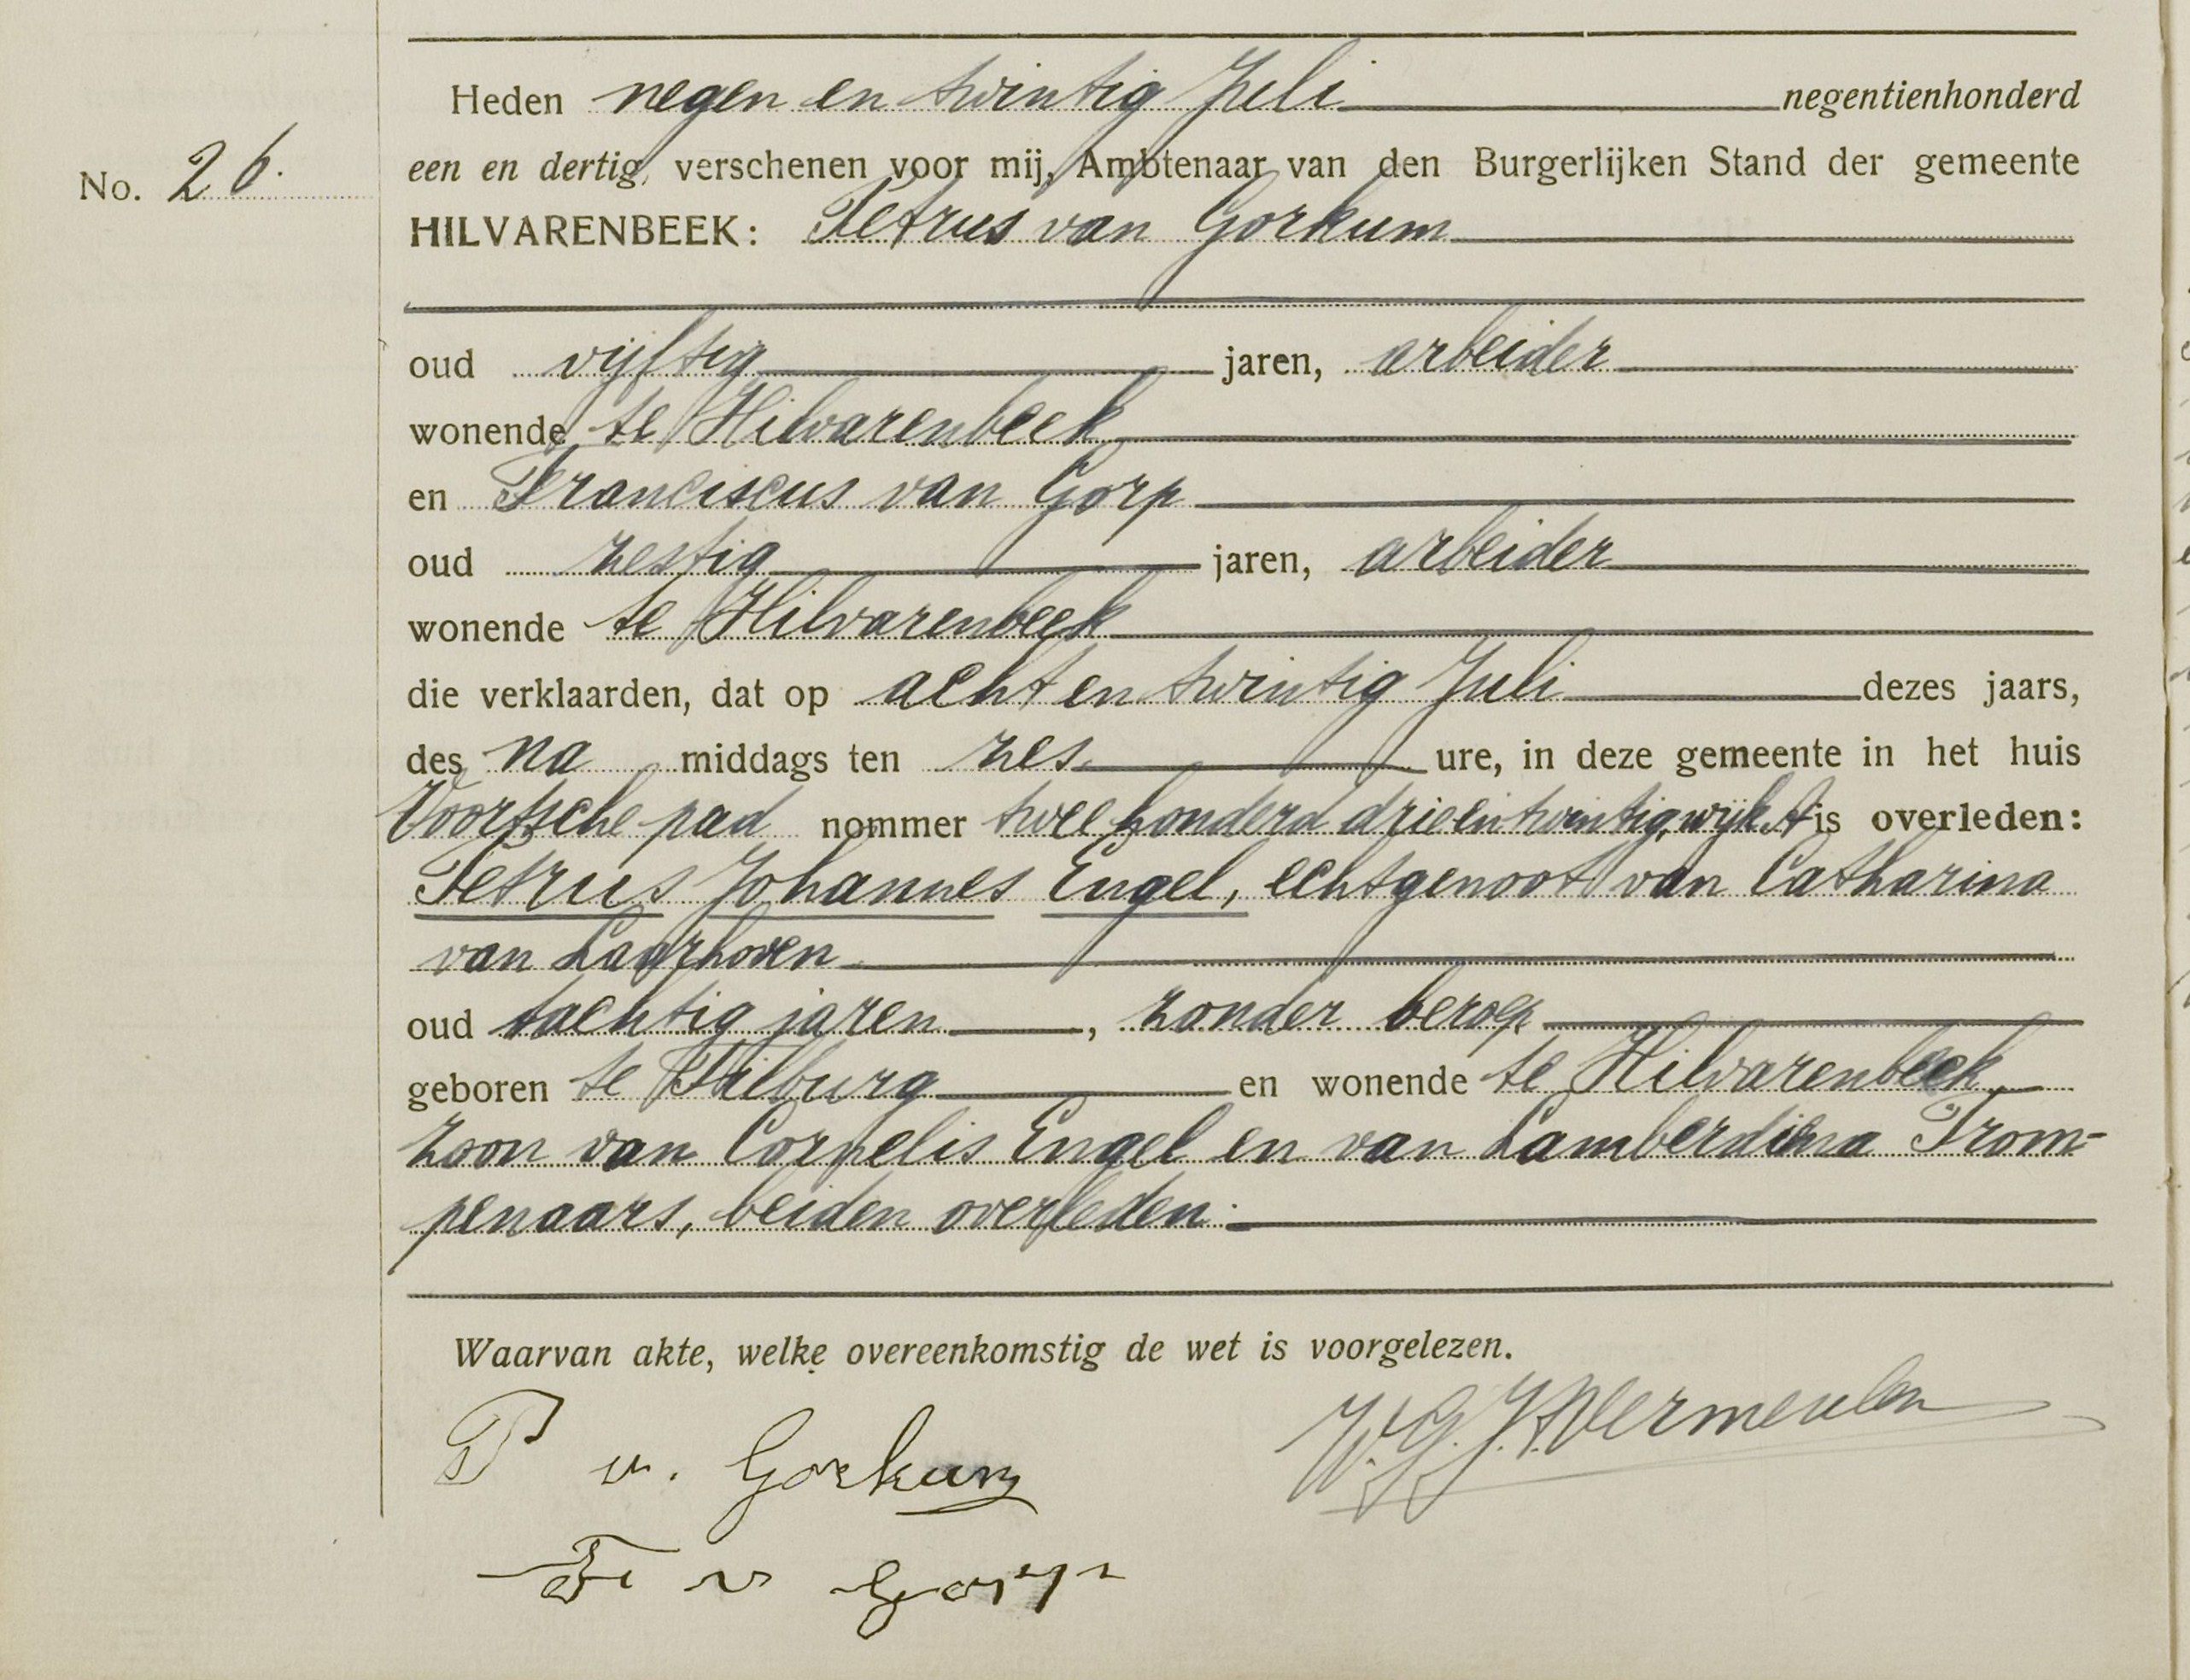 Heden negen en twintig Juli negentienhonderd
No. 26.
een en dertig, verschenen voor mij, Ambtenaar van den Burgerlijken Stand der gemeente
HILVARENBEEK: Petrus van Gorkum
oud vijftig jaren, arbeider
wonende te Hilvarenbeek
en Franciscus van Gorp
oud zestig jaren, arbeider
wonende te Hilvarenbeek
die verklaarden, dat op acht en twintig Juli dezes jaars,
des na middags ten zes ure, in deze gemeente in het huis
Voortsche pad nommer twee honderd drieëntwintig, wijk A is overleden:
Petrus Johannes Engel, echtgenoot van Catharina
van Laarhoven
oud tachtig jaren, zonder beroep
geboren te Tilburg en wonende te Hilvarenbeek,
zoon van Cornelis Engel en van Lamberdina Trom-
penaars, beiden overleden.
Waarvan akte, welke overeenkomstig de wet is voorgelezen.
P v. Gorkum
W.G.J. Vermeulen
F v Gorp